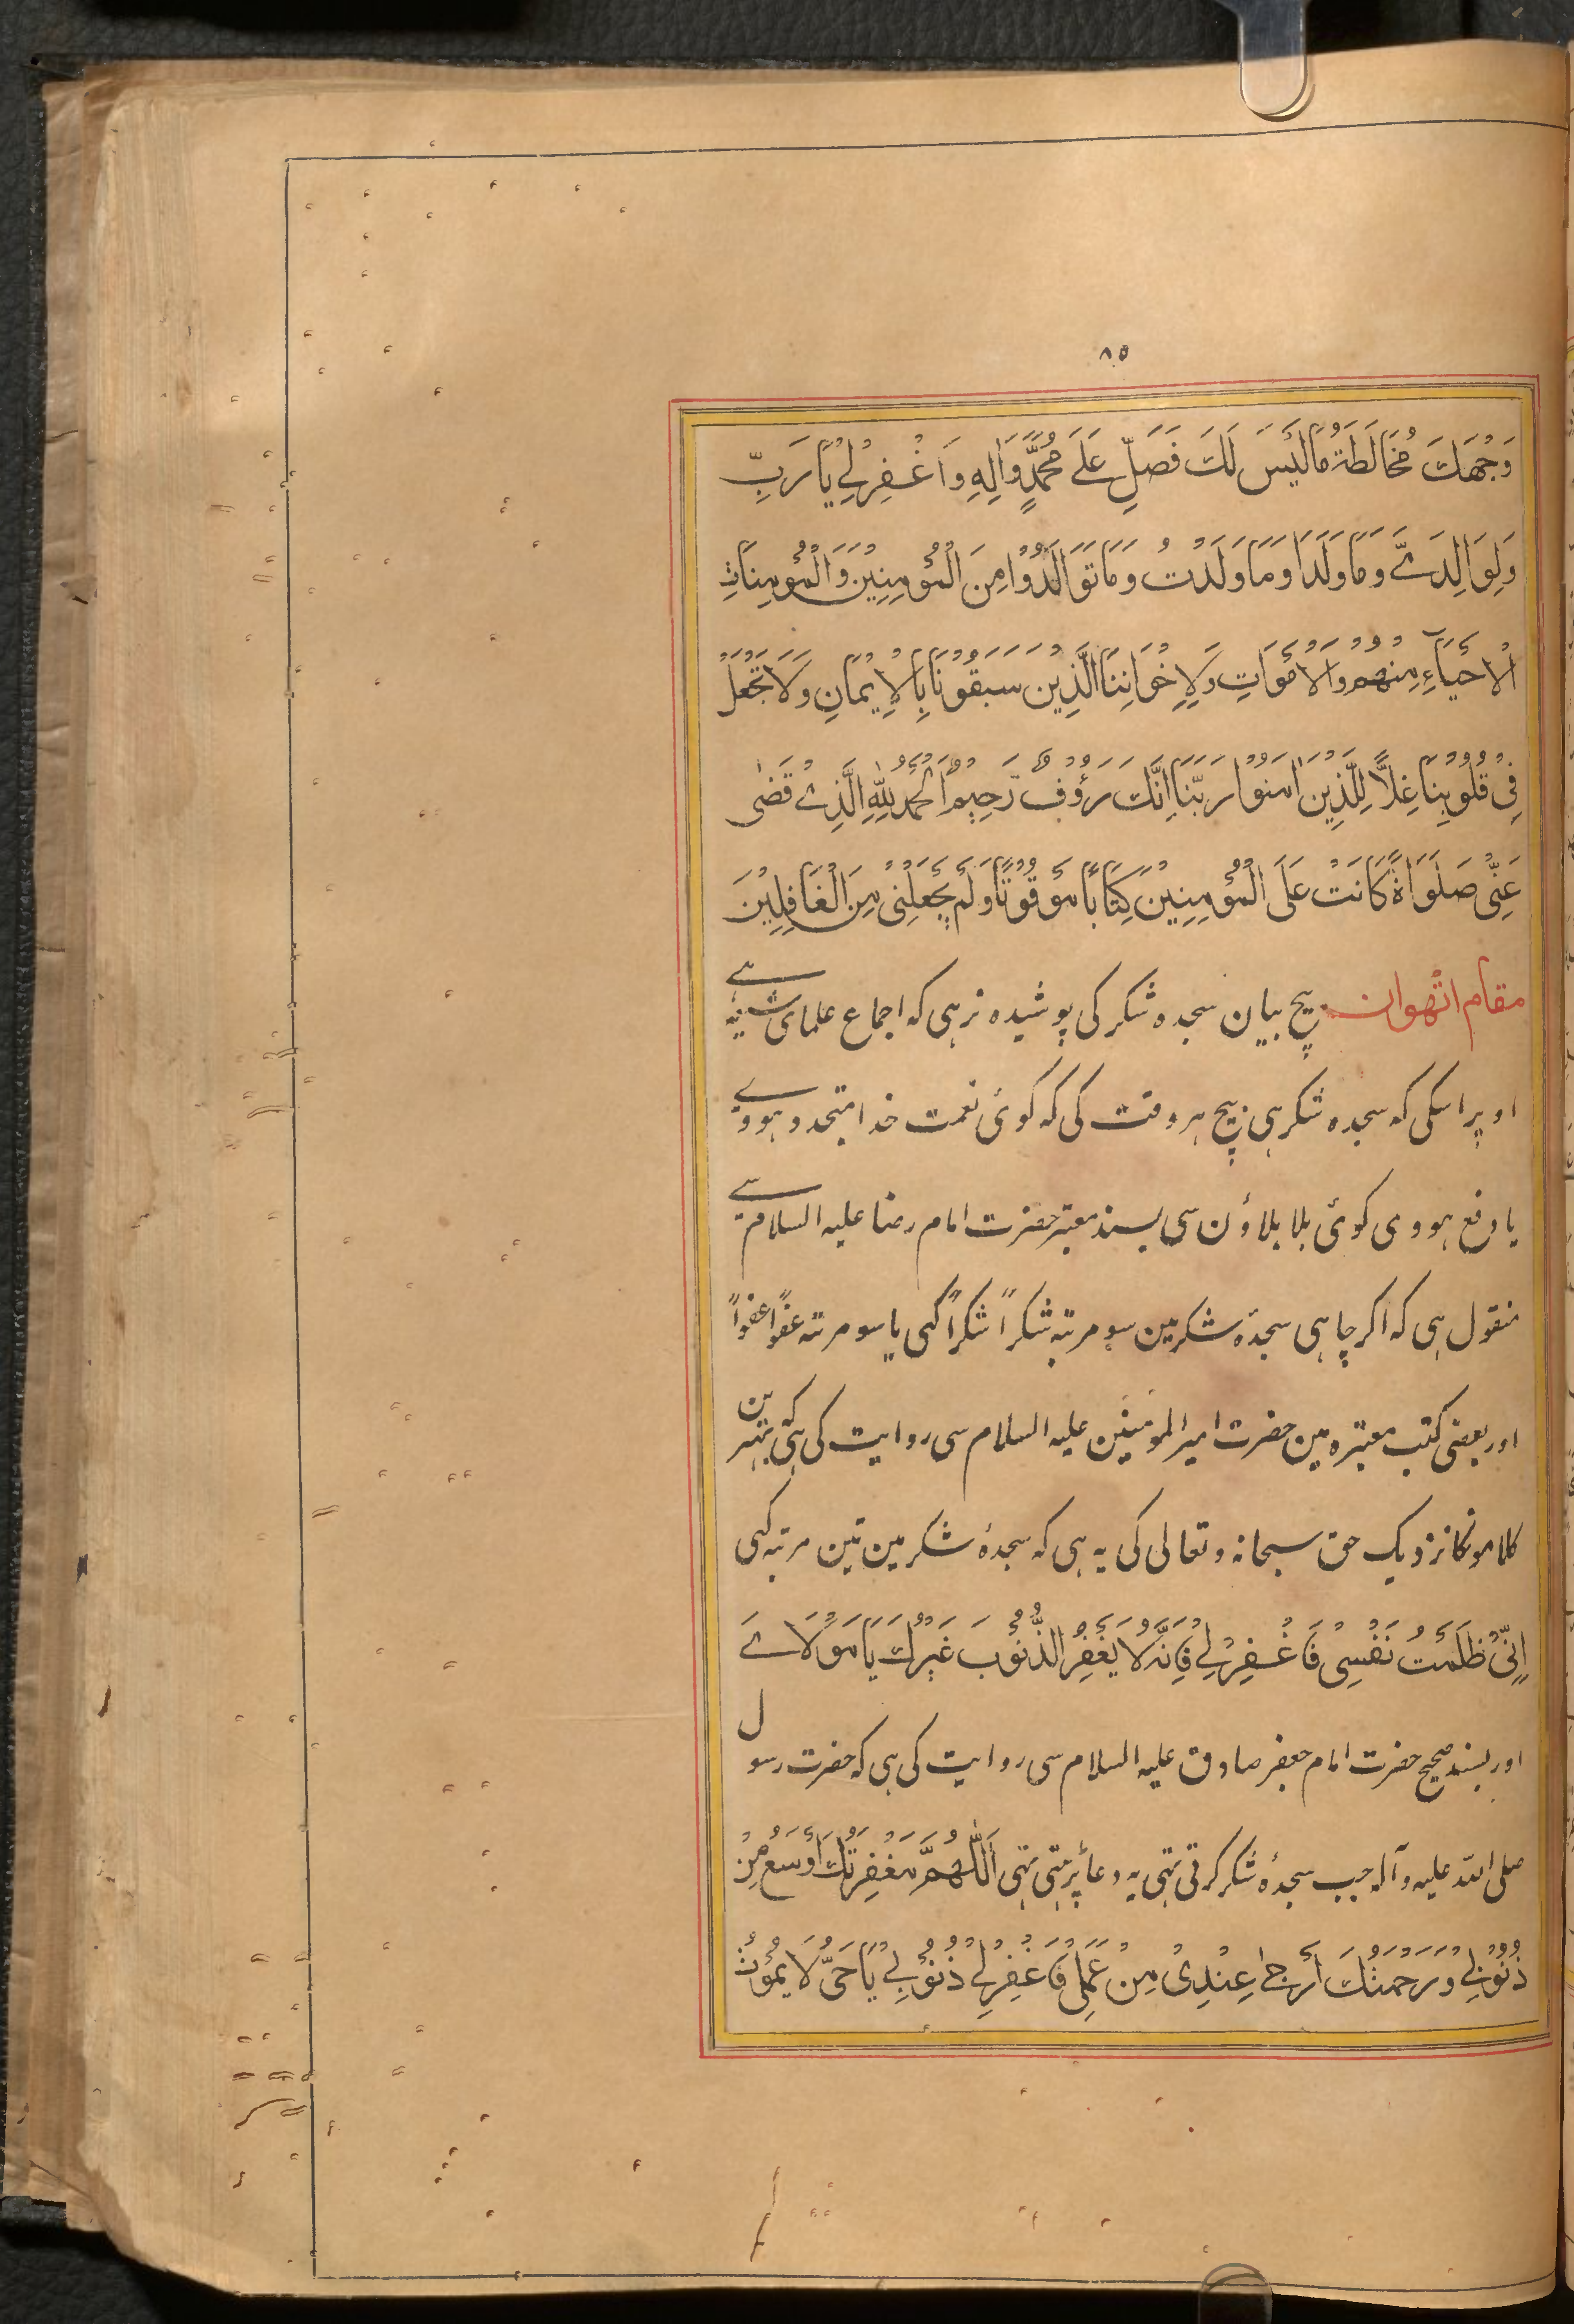 ٨٥
وَجْهَكَ مُخَالَطَةُ مَا لَيْسَ لَكَ فَصَلِّ عَلَى مُحَمَّدٍ وَاٰلِهِ وَاغْفِرْ لِيْ يَا رَبِّ
وَلِوَالِدَيَّ وَمَا وَلَدَا وَمَا وَلَدْتُ وَمَا تَوَالَدُوْا مِنَ الْمُؤْمِنِيْنَ وَالْمُؤْمِنَاتِ
الْاَحْيَاءِ مِنْهُمْ وَالْاَمْوَاتِ وَلِاِخْوَانِنَا الَّذِيْنَ سَبَقُوْنَا بِالْاِيْمَانِ وَلَا تَجْعَلْ
فِيْ قُلُوْبِنَا غِلًّا لِلَّذِيْنَ اٰمَنُوْا رَبَّنَا اِنَّكَ رَؤُوْفٌ رَحِيْمٌ اَلْحَمْدُ لِلّٰهِ الَّذِيْ قَضٰى
عَنِّيْ صَلَوَاةً كَانَتْ عَلَى الْمُؤْمِنِيْنَ كِتَابًا مَوْقُوْتًا وَلَمْ يَجْعَلْنِيْ مِنَ الْغَافِلِيْنَ
مقام اتٹھوان بیچ بیان سجدہ شکر کی پوشیدہ نرہی کہ اجماع علمای شیعہ ہے
اوپر اسکی کہ سجدہ شکر ہی بیچ ہر وقت کی کہ کوئی نعمت خدا متجدد ہووے
یا دفع ہووی کوئی بلا بلاؤن سی بسند معتبر حضرت امام رضا علیہ السلام سے
منقول ہی کہ اکر چاہی سجدۂ شکر مین سو مرتبہ شکراً شکراً کہی یا سو مرتبہ عفواً عفواً
اور بعضی کتب معتبرہ مین حضرت امیر المومنین علیہ السلام سی روایت کی ہی کہ بہترین
کلامونکا نزدیک حق سبحانہ وتعالی کی یہ ہی کہ سجدۂ شکر مین تین مرتبہ کہی
اِنِّيْ ظَلَمْتُ نَفْسِيْ فَاغْفِرْ لِيْ فَاِنَّهُ لَا يَغْفِرُ الذُّنُوْبَ غَيْرُكَ يَا مَوْلَايَ
اور بسند صحیح حضرت امام جعفر صادق علیہ السلام سی روایت کی ہی کہ حضرت رسول
صلی اللہ علیہ وآلہ جب سجدۂ شکر کرتی تہی یہ دعا پڑہتی تہی اَللّٰهُمَّ مَغْفِرَتُكَ اَوْسَعُ مِنْ
ذُنُوْبِيْ وَرَحْمَتُكَ اَرْجٰى عِنْدِيْ مِنْ عَمَلِيْ فَاغْفِرْ لِيْ ذُنُوْبِيْ يَا حَيُّ لَا يَمُوْتُ